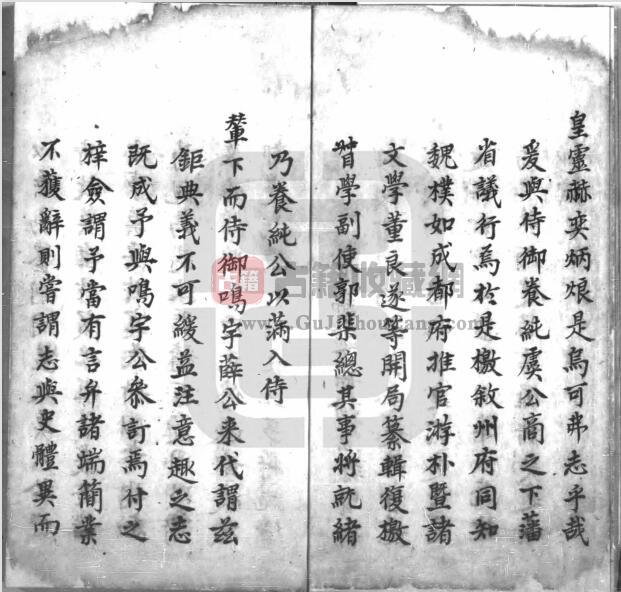 皇靈赫奕炳烺是烏可弗志乎哉
爰與侍御養純虞公商之下藩
省議行焉於是檄敘州府同知
魏樸如成都府推官游朴暨諸
文學董良遂等開局纂輯復檄
督學副使郭棐總其事將就緒
乃養純公以滿入侍
輦下而侍御鳴宇薛公来代謂茲
鉅典義不可緩益注意趣之志
既成予與鳴宇公叅訂焉付之
梓僉謂予當有言弁諸端簡業
不獲辭則嘗謂志與史體異而
古籍收藏網
www.GuJiShouCang.com
古籍